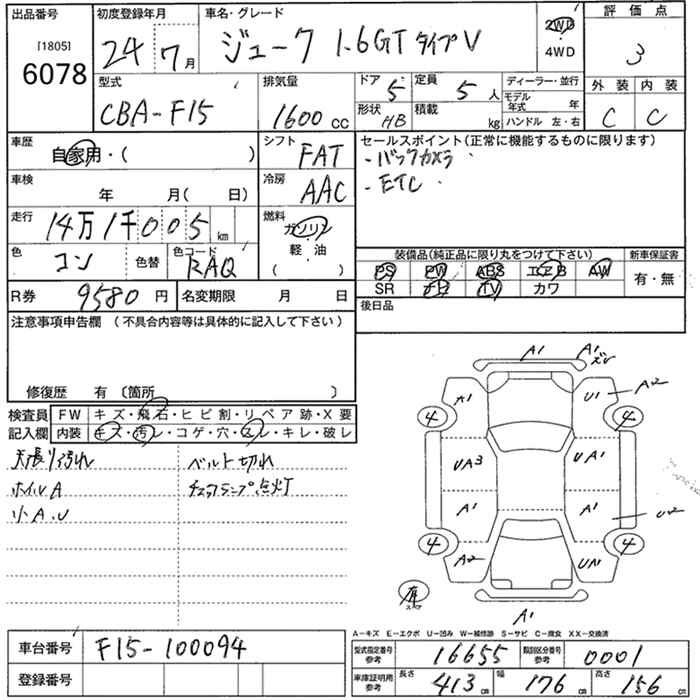 出品番号
[1805]
6078
初度登録年月
24 7月
車名・グレード
ジューク 1.6GT タイプV
2WD
4WD
評価点
3
外装 内装
C C
型式
CBA-F15
排気量
1600 cc
ドア 5
形状 HB
定員 5 人
積載 kg
ディーラー・並行
モデル年式 年
ハンドル 左・右
車歴
自家用・( )
シフト
FAT
セールスポイント(正常に機能するものに限ります)
・バックカメラ
・ETC
車検
年 月( 日)
冷房
AAC
走行
14万1千005 km
燃料
ガソリン
軽・油
( )
色
コン
色替
色コード
RAQ
装備品(純正品に限り丸をつけて下さい)
新車保証書
PS PW ABS エアB AW
SR ナビ TV カワ
有・無
R券
9580 円
名変期限 月 日
後日品
注意事項申告欄 (不具合内容等は具体的に記入して下さい)
修復歴 有 〔箇所 〕
検査員
記入欄
FW キズ・飛石・ヒビ割・リペア跡・X要
内装 キズ・汚レ・コゲ・穴・スレ・キレ・破レ
天張り汚れ
ベルト切れ
ホイルA
チェックランプ点灯
小A.U
A1
A1
ズレ
A1
U1
A2
4
4
UA3
UA1
A1
A1
U2
4
4
A2
UA1
A1
A-キズ E-エクボ U-凹み W-補修跡 S-サビ C-腐食 XX-交換済
車台番号
F15-100094
登録番号
型式指定番号
参考
16655
類別区分番号
参考
0001
車庫証明用
参考
長さ 413 cm
幅 176 cm
高さ 156 cm